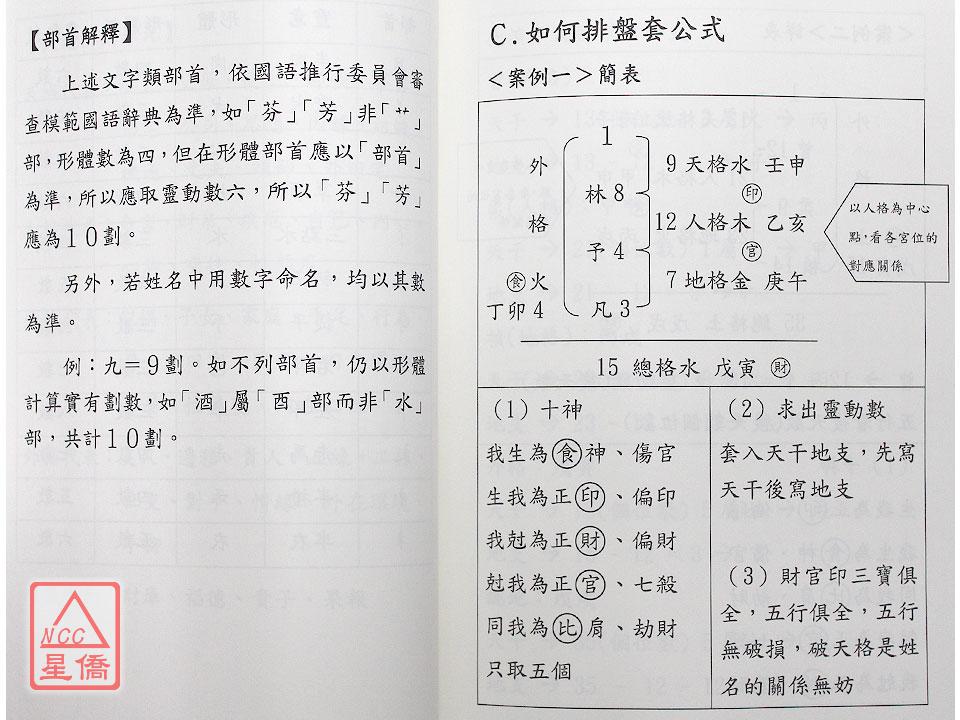 【部首解釋】
上述文字類部首，依國語推行委員會審
查模範國語辭典為準，如「芬」「芳」非「艹」
部，形體數為四，但在形體部首應以「部首」
為準，所以應取靈動數六，所以「芬」「芳」
應為10劃。
另外，若姓名中用數字命名，均以其數
為準。
例：九＝9劃。如不列部首，仍以形體
計算實有劃數，如「酒」屬「酉」部而非「水」
部，共計10劃。
NCC
星僑
C.如何排盤套公式
＜案例一＞簡表
外
格
食火
丁卯4
1
林8
予4
凡3
9天格水 壬申
印
12人格木 乙亥
官
7地格金 庚午
15 總格水 戊寅 財
以人格為中心
點，看各宮位的
對應關係
（1）十神
我生為食神、傷官
生我為正印、偏印
我尅為正財、偏財
尅我為正官、七殺
同我為比肩、劫財
只取五個
（2）求出靈動數
套入天干地支，先寫
天干後寫地支
（3）財官印三寶俱
全，五行俱全，五行
無破損，破天格是姓
名的關係無妨